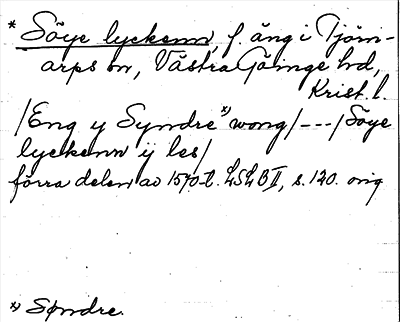 * Söye lyckenn, f. äng i Tjörn-
arps sn, Västra Göinge hd,
Krist. l.
/Eng y Syndre*) wong/---/Söye
lyckenn ij les/
förra delen av 1570-t. LSLB II, s. 120. orig
*) Søndre.